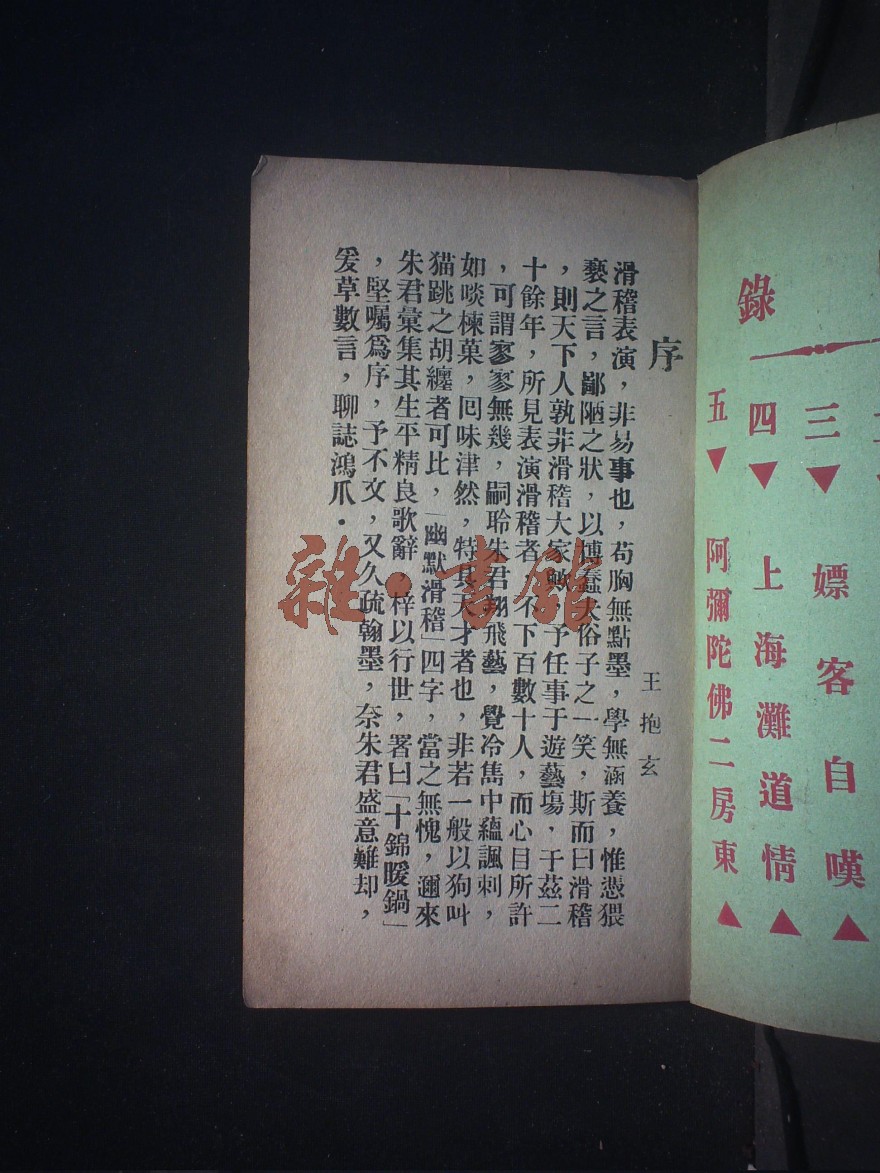 錄
三▼ 嫖客自嘆▲
四▼ 上海灘道情▲
五▼ 阿彌陀佛二房東▲
序
王抱玄
滑稽表演，非易事也，苟胸無點墨，學無涵養，惟憑猥
褻之言，鄙陋之狀，以博蠢夫俗子之一笑，斯而曰滑稽
，則天下人孰非滑稽大家歟，予任事于遊藝塲，于茲二
十餘年，所見表演滑稽者，不下百數十人，而心目所許
，可謂寥寥無幾，嗣聆朱君翔飛藝，覺冷雋中蘊諷刺，
如啖楝菓，囘味津然，特其天才者也，非若一般以狗叫
猫跳之胡纏者可比，「幽默滑稽」四字，當之無愧，邇來
朱君彙集其生平精良歌辭，梓以行世，署曰「十錦暖鍋」
，堅囑爲序，予不文，又久疏翰墨，奈朱君盛意難却，
爰草數言，聊誌鴻爪．
雜·書館